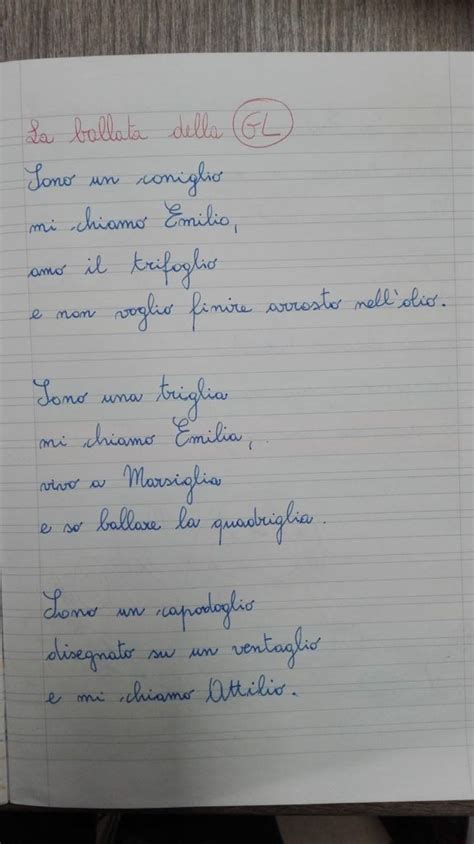 La ballata della GL
Sono un coniglio
mi chiamo Emilio,
amo il trifoglio
e non voglio finire arrosto nell'olio.
Sono una triglia
mi chiamo Emilia,
vivo a Marsiglia
e so ballare la quadriglia.
Sono un capodoglio
disegnato su un ventaglio
e mi chiamo Attilio.